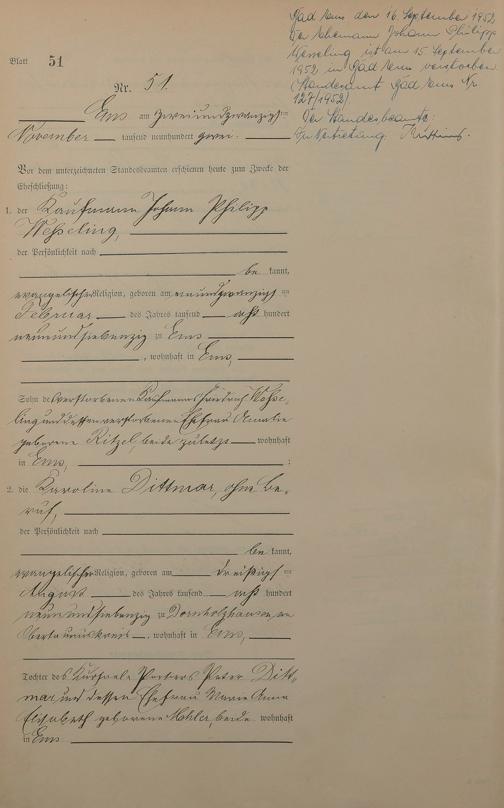 Bad Ems den 16. September 1952
Der Ehemann Johann Philipp
Wesseling ist am 15 September
1952 in Bad Ems verstorben
(Standesamt Bad Ems Nr
127/1952)
Der Standesbeamte:
In Vertretung
Blatt 51
Nr. 51.
Ems am zweiundzwanzigsten
November tausend neunhundert zwei.
Vor dem unterzeichneten Standesbeamten erschienen heute zum Zwecke der
Eheschließung:
1. der Kaufmann Johann Philipp
Weßeling,
der Persönlichkeit nach
be kannt,
evangelischer Religion, geboren am neunundzwanzigsten
Februar des Jahres tausend acht hundert
neunundsiebenzig zu Ems
, wohnhaft in Ems,
Sohn des verstorbenen Kaufmanns Friedrich Weße-
ling und dessen verstorbenen Ehefrau Amalie
geborene Ritzel, beide zuletzt wohnhaft
in Ems, ;
2. die Karoline Dittmar, ohne Be-
ruf,
der Persönlichkeit nach
be kannt,
evangelischer Religion, geboren am dreißigsten
August des Jahres tausend acht hundert
neunundsiebenzig zu Dornholzhausen, im
Obertaunuskreis, wohnhaft in Ems,
Tochter des Kursaale Portiers Peter Ditt-
mar und dessen Ehefrau Marie Anna
Elisabeth geborene Mohler, beide wohnhaft
in Ems